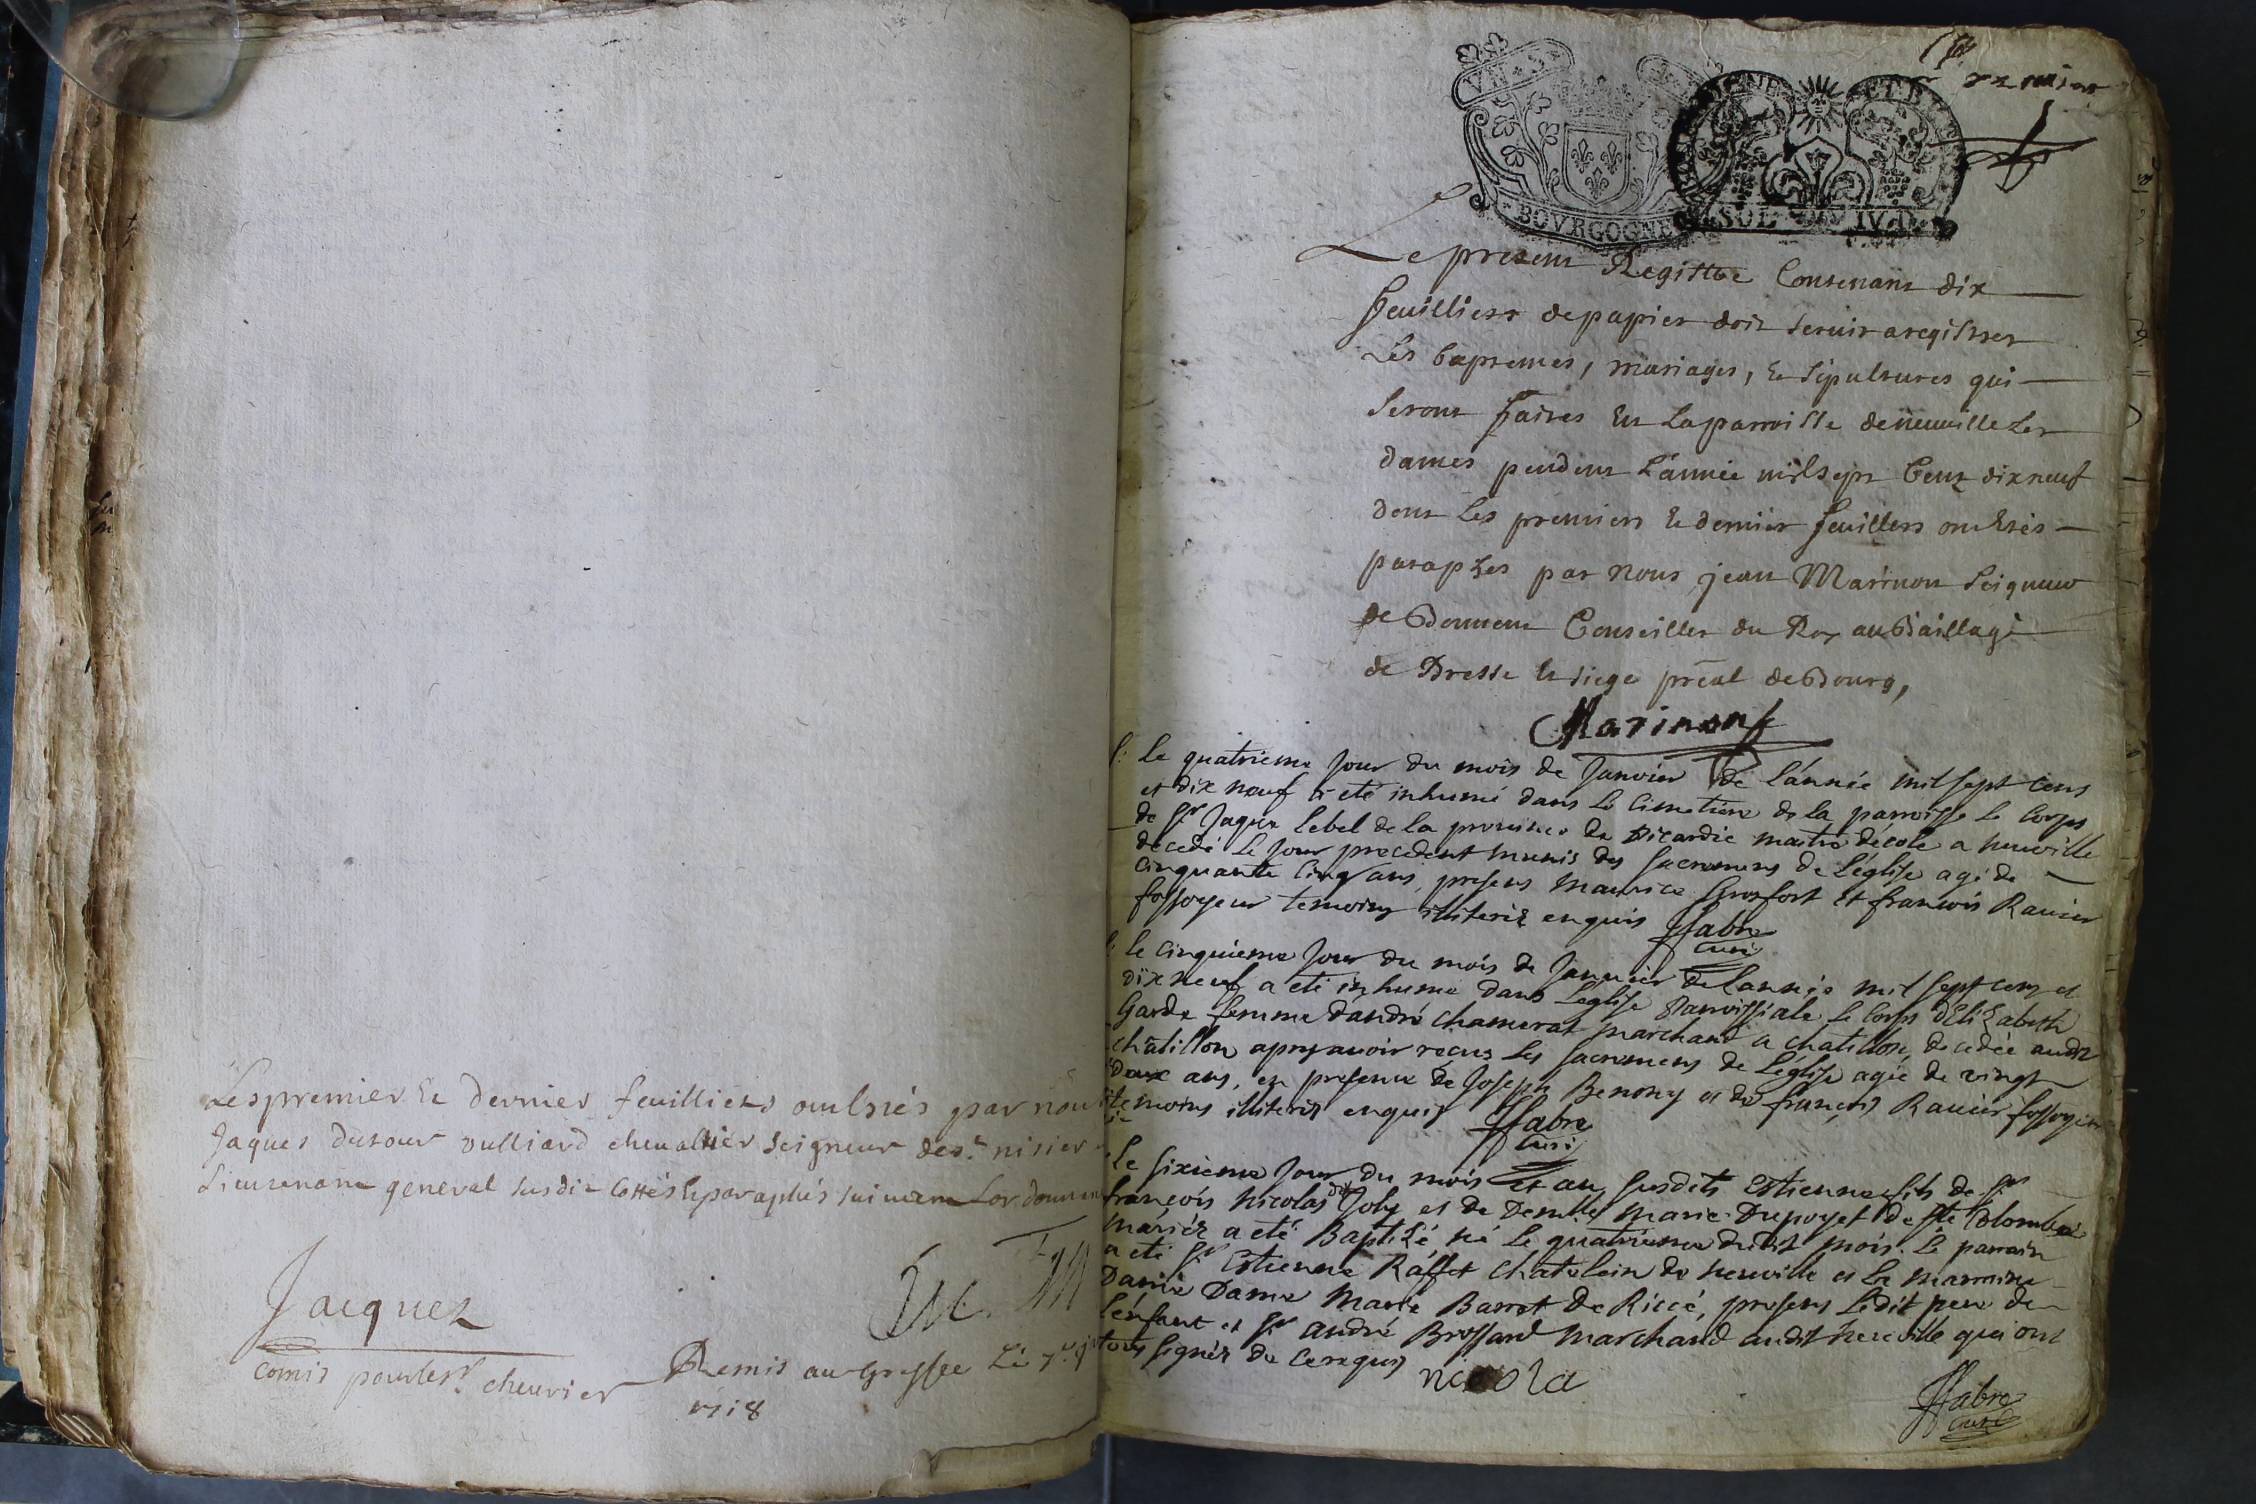 Les premier et dernier feuilliers ont estés par nous
Jaques dutour vulliard chevallier seigneur de st nisier
Lieutenant general susdit cottés et paraphés suivant Lordonnan
Jacquet
comis pour le sr chevrier
Remis au Greffe Le 7e
1718
premier
BOVRGOGNE
SOL
Le present Registre Contenant dix
feuilliers de papier doit servir a registrer
Les baptemes, mariages, et sepultures qui
seront faites en La parroisse de neuville Les
dames pendent L'année mil sept Cent dix neuf
dont Les premiers et dernier feuillers ont estés
paraphes par nous jean Marinon seigneur
de Conseiller du Roy au Baillage
de Bresse et siege préal de Bourg,
Marinon
S: Le quatrieme Jour du mois de Janvier de L'année mil sept cens
et dix neuf a eté inhumé dans Le Cimetiere de la parroisse Le Corps
de Sr Jaque Lebel de la province de Picardie maitre d'ecole a neuville
décedé Le Jour precedent munis des sacremens de L'église agé de
cinquante Cinq ans, presens Maurice Grosfort Et francois Ravier
fossoyeur temoins illiteréz enquis ffabre
Curé
S: Le cinquieme Jour du mois de Janvier de Lannée mil sept cens et
dix neuf a eté inhumé dans L'eglise Parroissiale Le Corps d'Elizabeth
Garde femme d'andré Chamerat marchand a Chatillon, decedée audit
Chatillon apres avoir recus Les sacremens de L'église agée de vingt
deux ans, en presence de Joseph Benony et de françois Ravier fossoyeur
temoins illiteréz enquis ffabre
Curé
Le sixieme Jour du mois et an susdits Estienne fils de Sr
françois Nicolas de Joly et de Demlle Marie Drepoyet de Ste Colombe
mariéz a eté Baptizé né Le quatrieme dudit mois. Le parrain
a eté Sr Estienne Raffet Chatelain de neuville et La marraine
Dame Marie Barrot De Riccé, presens Ledit pere de
L'enfant et Sr andré Brossard Marchand audit neuville qui ont
tous signéz de ce requis
nicola
ffabre
curé